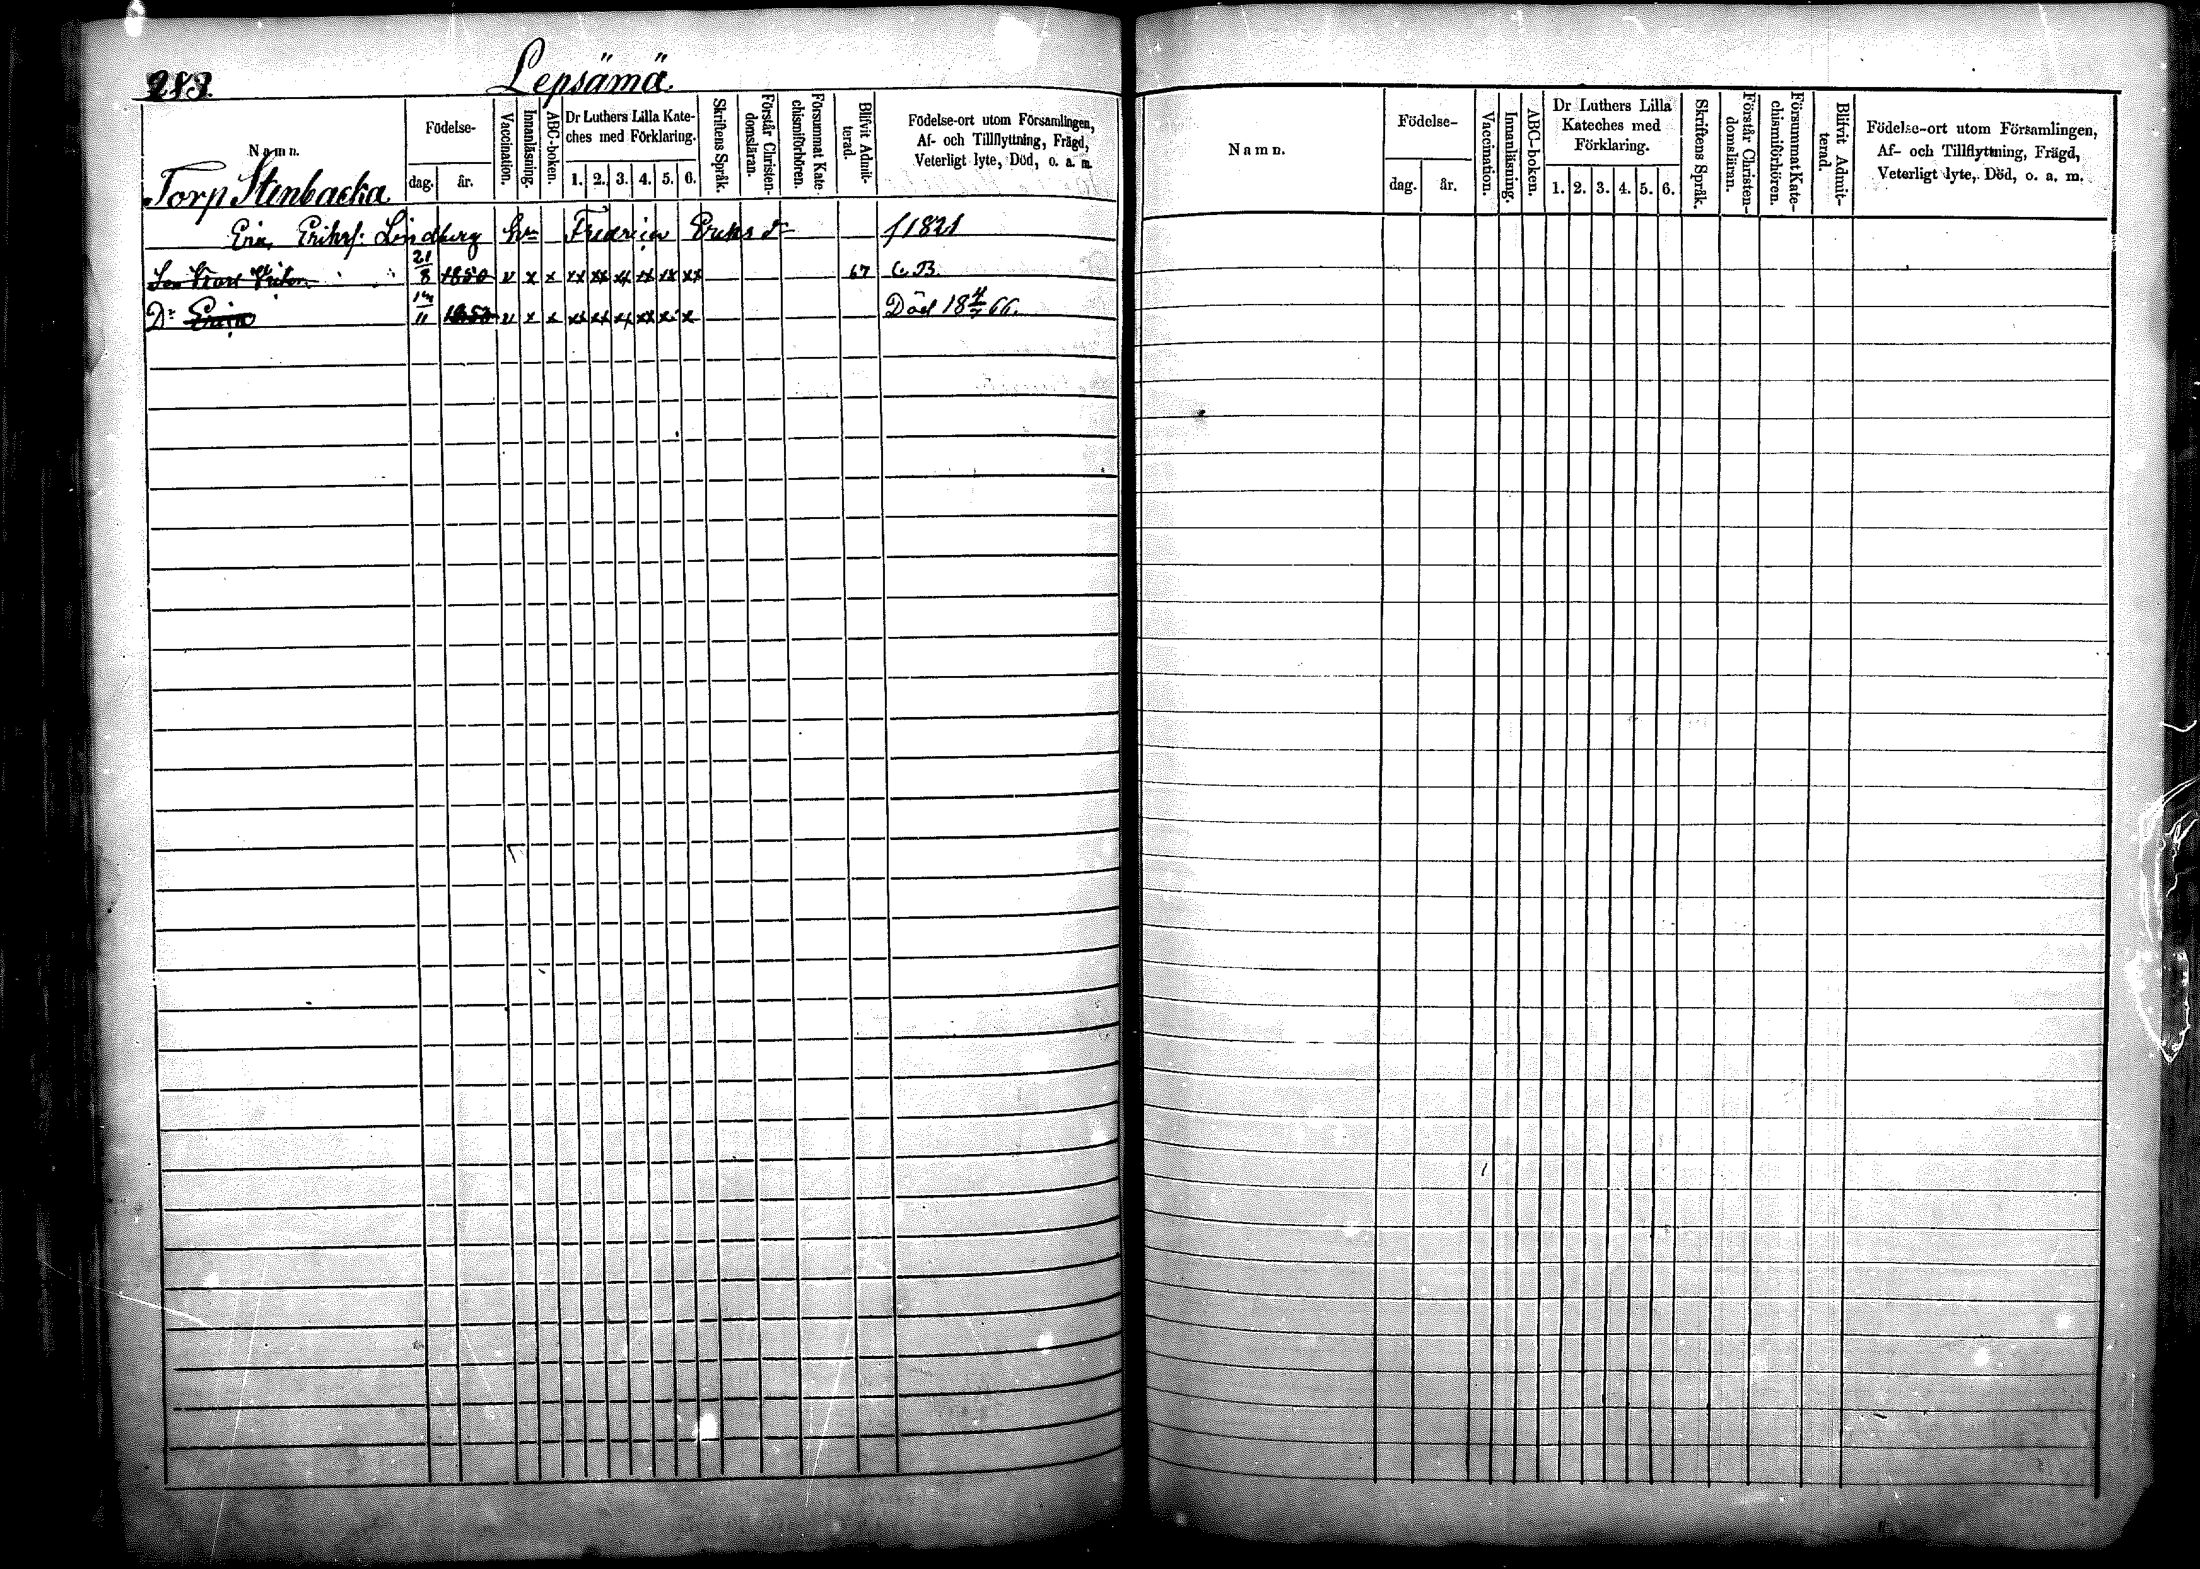 283.
Lepsämä.
Namn.
Födelse-
dag. år.
Vaccination.
Innanläsning.
ABC-boken.
Dr Luthers Lilla Kate-
ches med Förklaring.
1. 2. 3. 4. 5. 6.
Skriftens Språk.
Förstår Christen-
domsläran.
Försummat Kate-
chismiförhören.
Blifvit Admit-
terad.
Födelse-ort utom Församlingen,
Af- och Tillflyttning, Frägd,
Veterligt lyte, Död, o. a. m.
Torp Stenbacka
Lindberg Eriks dr f 1821
21/8 1850 v x x xx xx xx xx xx xx 67 C.B.
Dr 11 v x x Död 18 66.
Namn.
Födelse-
dag. år.
Vaccination.
Innanläsning.
ABC-boken.
Dr Luthers Lilla
Kateches med
Förklaring.
1. 2. 3. 4. 5. 6.
Skriftens Språk.
Förstår Christen-
domsläran.
Försummat Kate-
chismiförhören.
Blifvit Admit-
terad.
Födelse-ort utom Församlingen,
Af- och Tillflyttning, Frägd,
Veterligt lyte, Död, o. a. m.